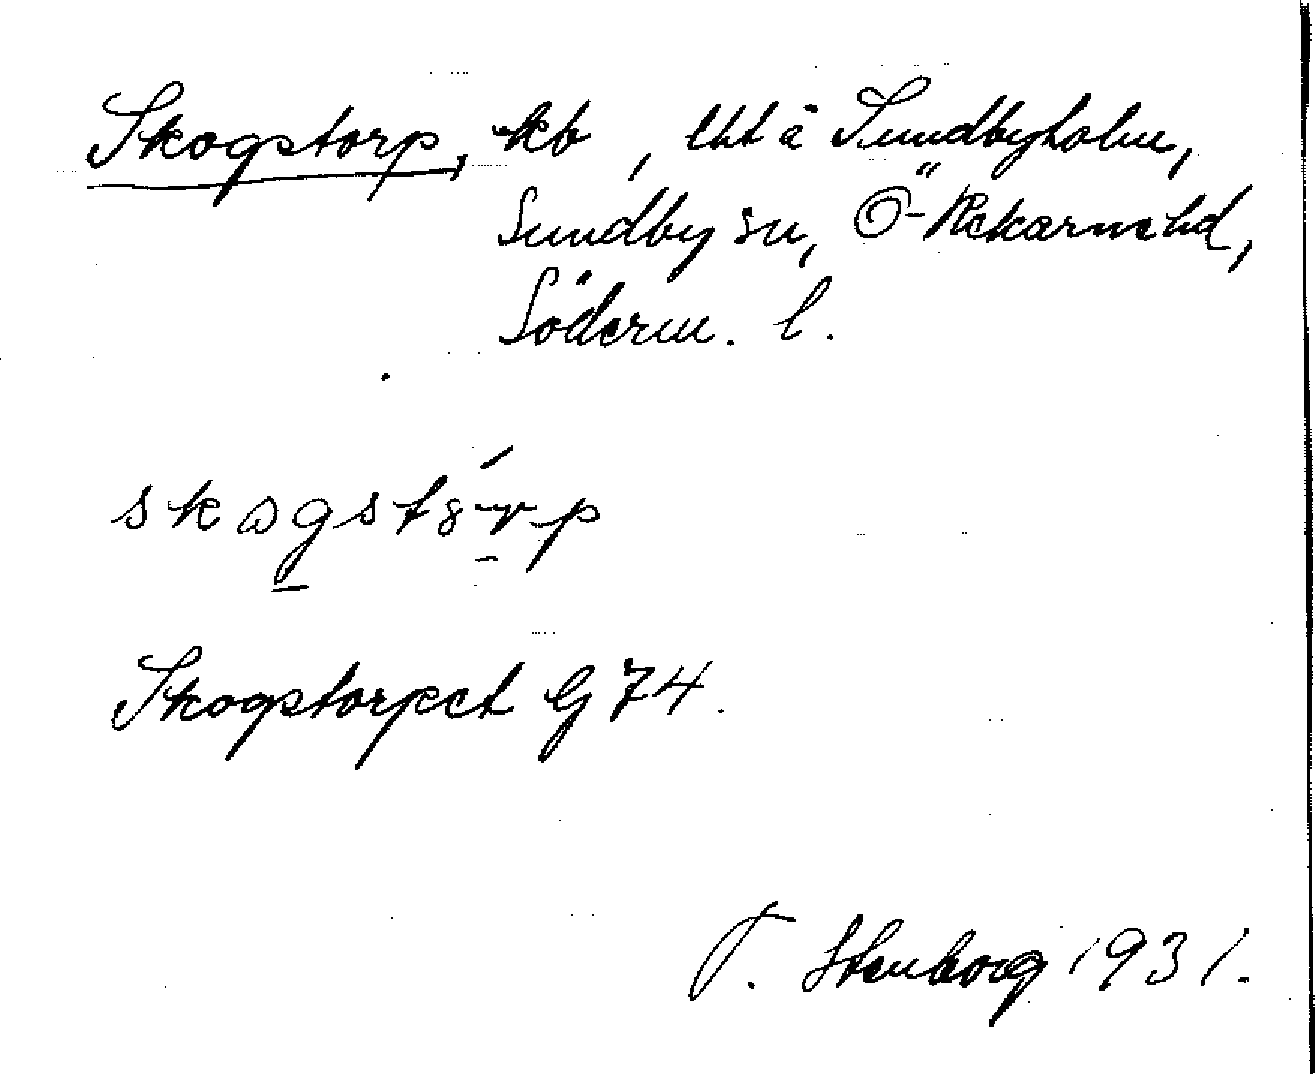 Skogstorp, kb, lht å Sundbyholm,
Sundby sn, Ö-Rekarne hd,
Söderm. l.
skɷgstȣ́rp
Skogstorpet G 74.
T. Stenborg 1931.